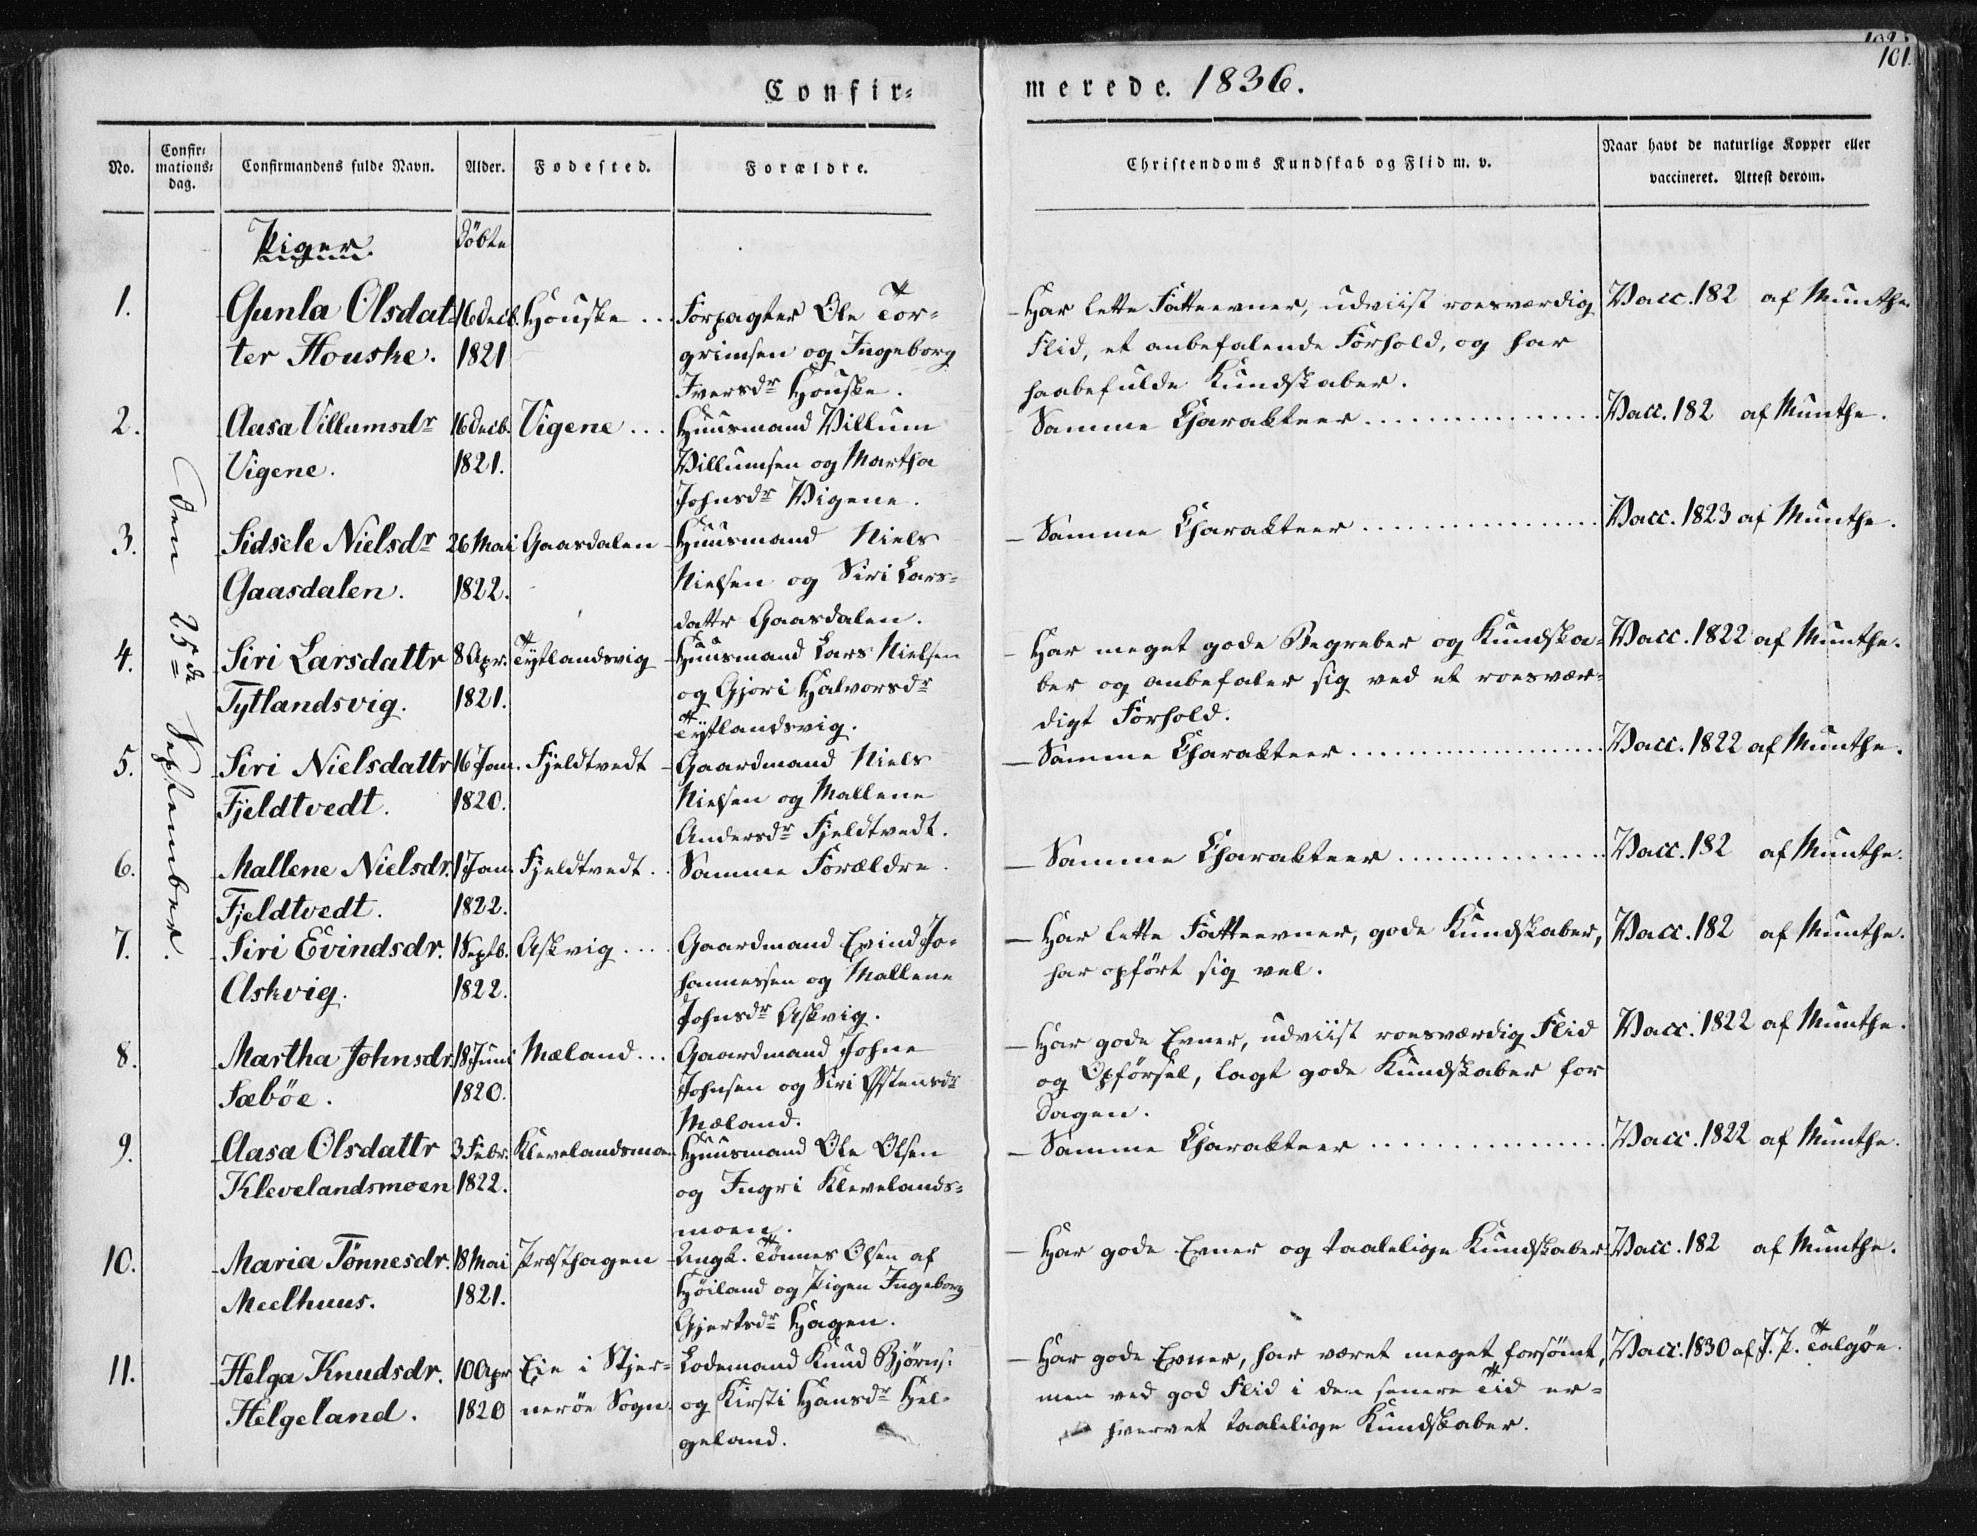 102.
101.
Confir=
merede. 1836.
No.
Confir=
mations=
dag.
Confirmandens fulde Navn.
Alder.
Fødested.
Forældre.
Christendoms Kundskab og Flid m. v.
Naar havt de naturlige Kopper eller
vaccineret. Attest derom.
den 25de September.
Piger.
döbte
1. Gunla Olsdat= 16 Decb. Houske .. Forpagter Ole Tor= Har lette Fatteevner, udviist roesværdig Vacc. 182 af Munthe
ter Houske. 1821 grimsen og Ingeborg Flid, et anbefalende Forhold, og har
Iversdr Houske. haabefulde Kundskaber.
2. Aasa Villumsdr 16 Decb. Vigene ... Huusmand Villum Samme Charakteer ................ Vacc. 182 af Munthe.
Vigene. 1821. Villumsen og Martha
Johnsdr Vigene.
3. Sidsele Nielsdr 26 Mai Gaasdalen Huusmand Niels Samme Charakteer ................ Vacc. 1823 af Munthe.
Gaasdalen. 1822. Nielsen og Siri Lars=
dattr Gaasdalen.
4. Siri Larsdattr 8 Apr. Tytlandsvig Huusmand Lars Nielsen Har meget gode Begreber og Kundska= Vacc. 1822 af Munthe.
Tytlandsvig. 1821. og Gjori Halvorsdr ber og anbefaler sig ved et roesvær=
Tytlandsvig. digt Forhold.
5. Siri Nielsdattr 16 Jan. Fjeldtvedt Gaardmand Niels Samme Charakteer ................ Vacc. 1822 af Munthe.
Fjeldtvedt. 1820. Nielsen og Mallene
Andersdr Fjeldtvedt.
6. Mallene Nielsdr. 1 Jan. Fjeldtvedt .. Samme Forældre. Samme Charakteer ............. Vacc. 182 af Munthe.
Fjeldtvedt. 1822.
7. Siri Evindsdr. 1 Septb. Askvig .... Gaardmand Evind Jo- Har lette Fatteevner, gode Kundskaber, Vacc. 182 af Munthe.
Askvig. 1822. hannessen og Mallene har opført sig vel.
Johnsdr Askvig.
8. Martha Johnsdr. 18 Juni Mæland ... Gaardmand Johne Har gode Evner, udviist roesværdig Flid Vacc. 1822 af Munthe.
Sæböe. 1820. Johnsen og Siri Østensdr og Opförsel, lagt gode Kundskaber for
Mæland. Dagen.
9. Aasa Olsdattr 3 Febr. Klevelandsmoen Huusmand Ole Olsen Samme Charakteer ................ Vacc. 1822 af Munthe.
Klevelandsmoen 1822. og Ingri Klevelands=
moen.
10. Maria Tönnesdr. 18 Mai Præsthagen Ungk. Tönnes Olsen af Har gode Evner og taalelige Kundskaber Vacc. 182 af Munthe.
Meelhuus. 1821. Höiland og Pigen Ingeborg
Gjertsdr Hagen.
11. Helga Knudsdr. 10 Apr Eie i Stjer= Lodsmand Knud Björns: Har gode Evner, har været meget forsömt, Vacc. 1830 af J. P. Talgøe.
Helgeland. 1820 neröe Sogn. og Kirsti Hansdr Hel- men ved god Flid i den senere Tid er=
geland. hvervet taalelige Kundskaber.